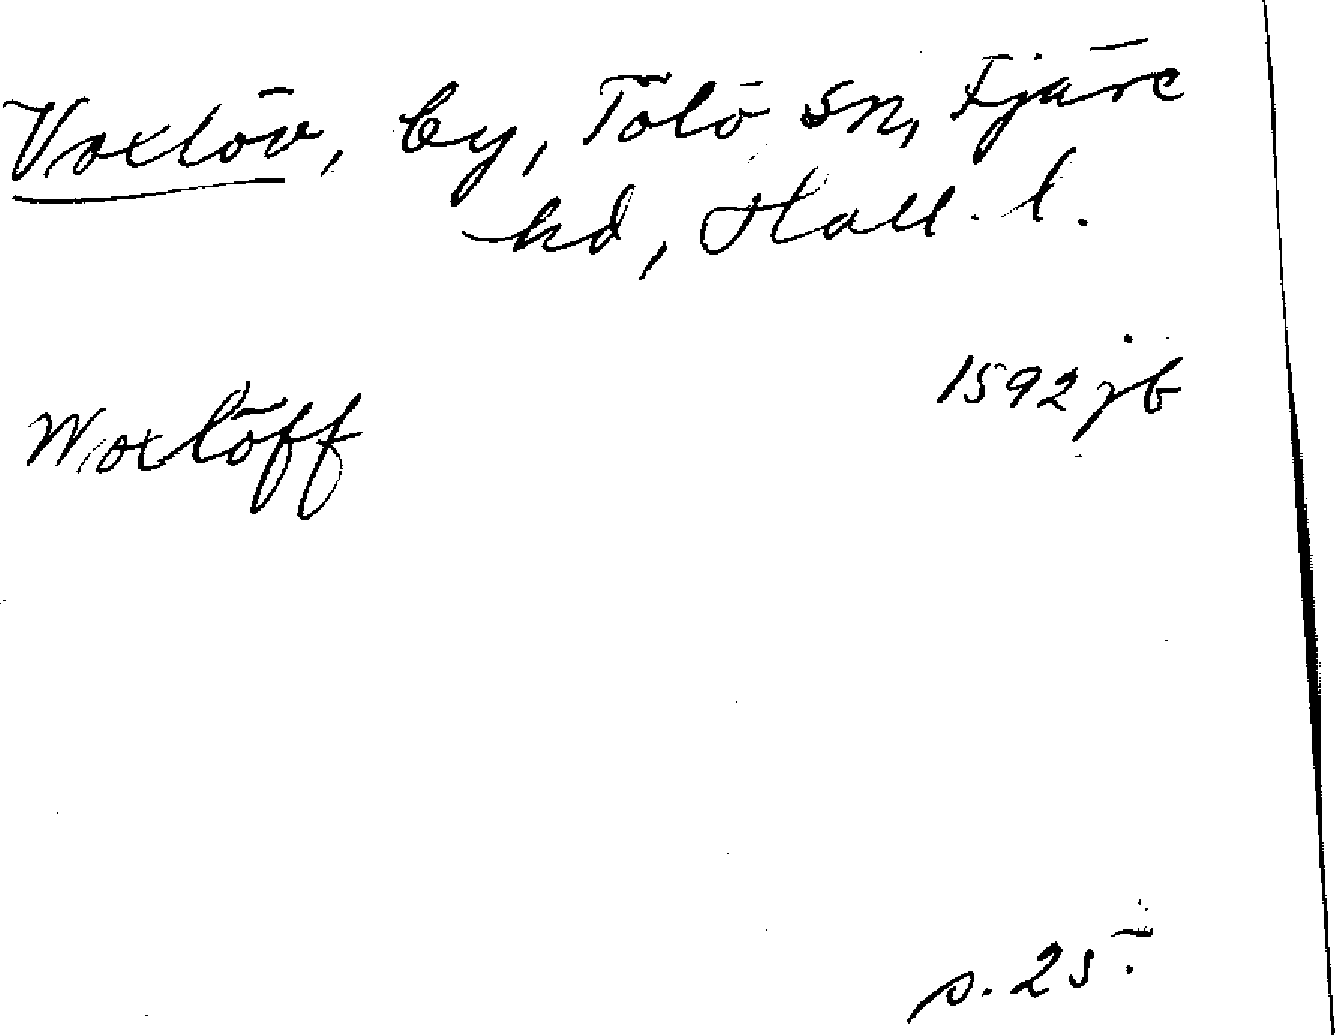 Voxlöv, by, Tölö sn, Fjäre
hd, Hall. l.
Woxlöff 1592 jb
s. 25.